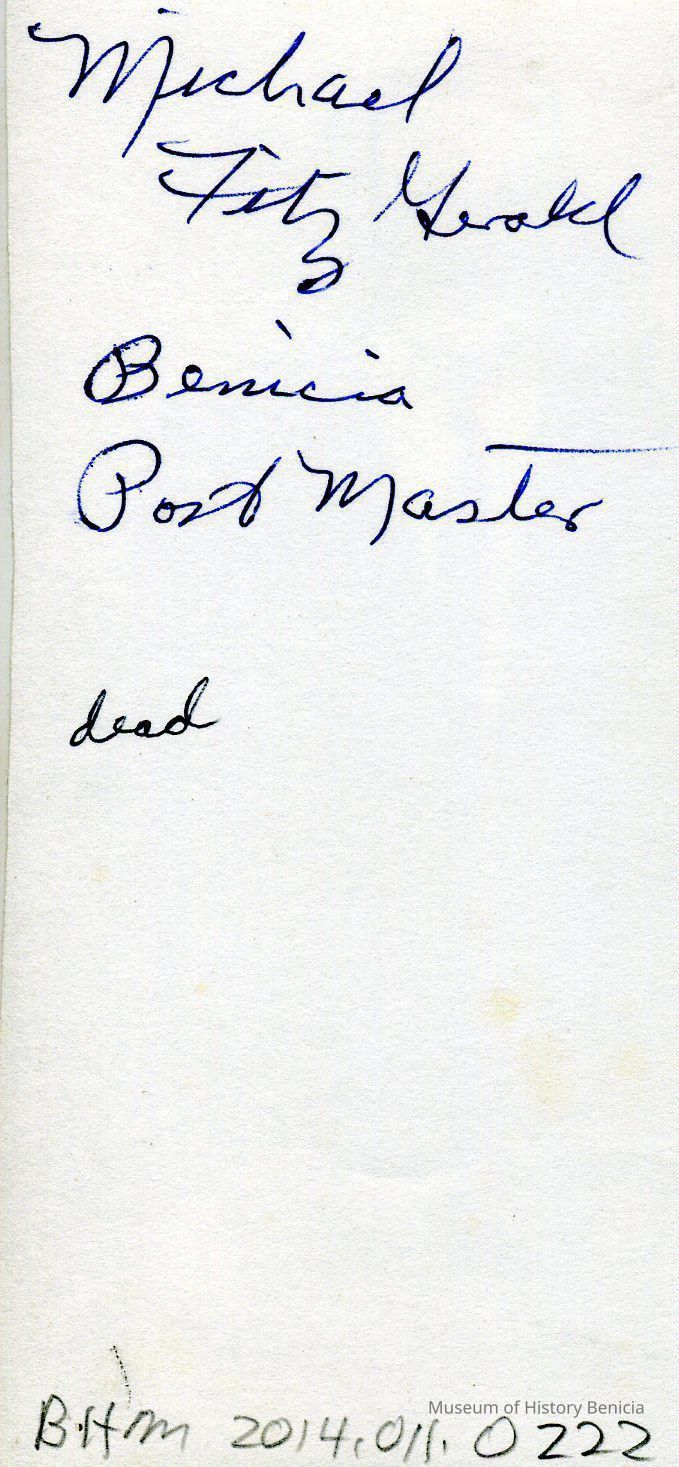 Michael
Fitz Gerald
Benicia
Post Master
dead
Museum of History Benicia
B.H.M 2014.011.0222